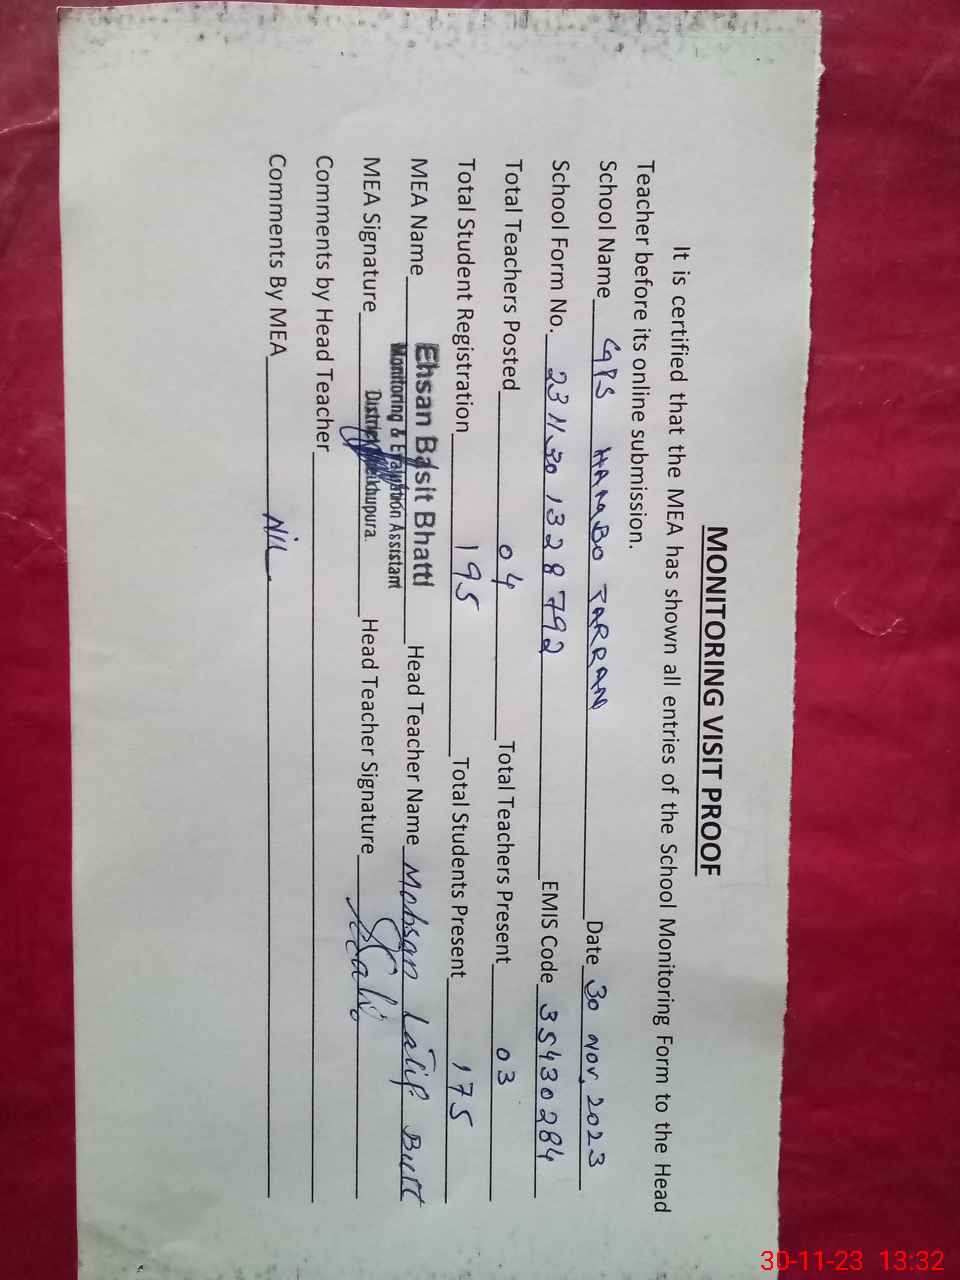 MONITORING VISIT PROOF
It is certified that the MEA has shown all entries of the School Monitoring Form to the Head
Teacher before its online submission.
School Name GPS HAMBO TARRAN Date 30 Nov, 2023
School Form No. 2311301328792 EMIS Code 35430284
Total Teachers Posted 04 Total Teachers Present 03
Total Student Registration 195 Total Students Present 175
MEA Name Ehsan Basit Bhatti Head Teacher Name Mohsan Latif Butt
Monitoring & Evaluation Assistant
MEA Signature District Sheikhupura. Head Teacher Signature
Comments by Head Teacher
Comments By MEA Nil
30-11-23 13:32